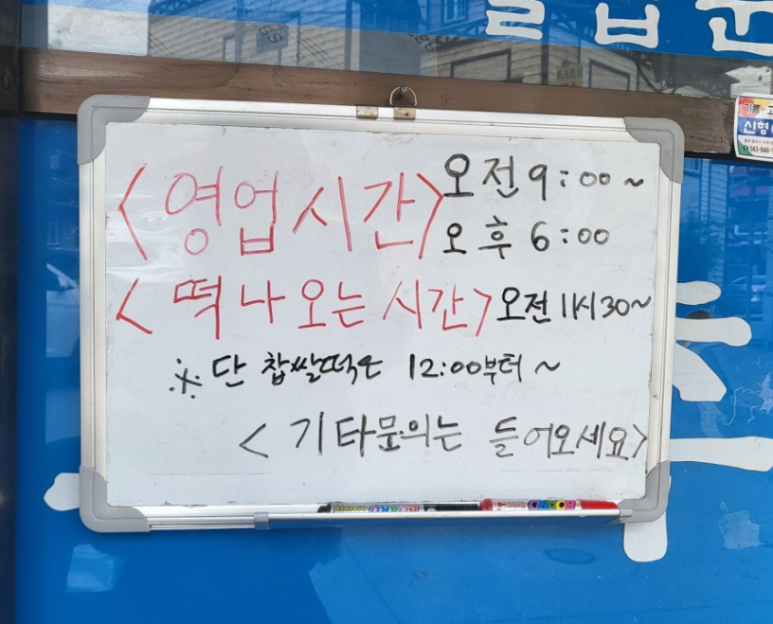 <영업시간> 오전 9:00 ~
오후 6:00
<떡 나오는 시간> 오전 11시30~
※ 단 찹쌀떡은 12:00부터 ~
<기타문의는 들어오세요>
신형